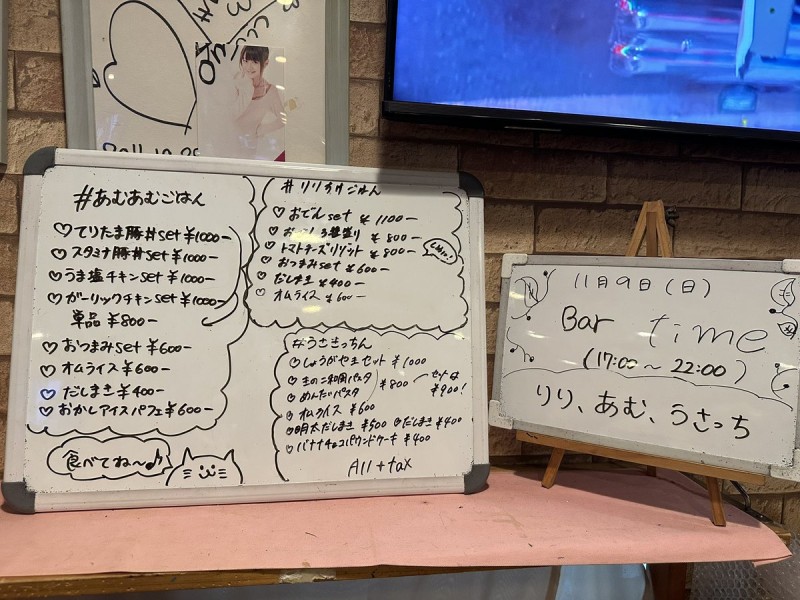 #あむあむごはん
♡てりたま豚丼set ¥1000-
♡スタミナ豚丼set ¥1000-
♡うま塩チキンset ¥1000-
♡ガーリックチキンset ¥1000-
単品 ¥800-
♡おつまみset ¥600-
♡オムライス ¥600-
♡だしまき ¥400-
♡おかしアイスパフェ ¥600-
食べてね〜♪
#りりすけごはん
♡おでんset ¥1100-
盛り ¥800-
♡トマトチーズリゾット ¥800-
♡おつまみset ¥600-
♡だしまき ¥400-
♡オムライス ¥600-
#うさきっちん
♡しょうがやきセット ¥1000
♡きのこ和風パスタ
♡めんたいパスタ
¥800
セットは
¥900!
♡オムライス ¥600
♡明太だしまき ¥500 ♡だしまき ¥400
♡バナナチョコパウンドケーキ ¥400
All + tax
11月9日(日)
Bar time
(17:00〜22:00)
りり、あむ、うさっち